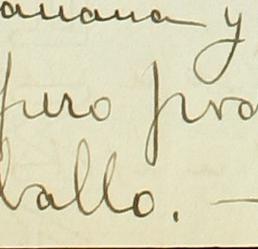 anana y
puro pra
ballo. —